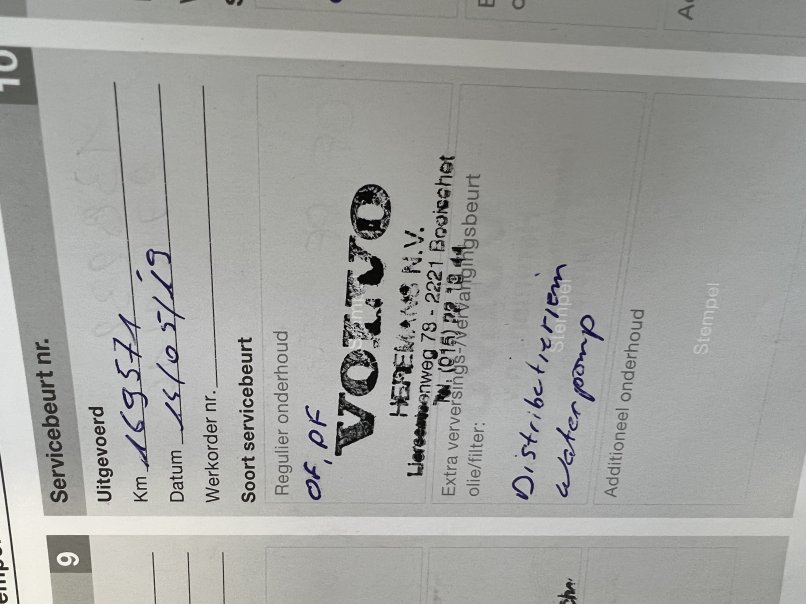 9
Servicebeurt nr.
10
Uitgevoerd
Km 169571
Datum 14/05/19
Werkorder nr.
Soort servicebeurt
Regulier onderhoud
OF, PF
VOLVO
HEREMANS N.V.
78 - 2221 Booischot
Tel. (015) 22 19 44
Extra verversings-/vervangingsbeurt
olie/filter:
Distributieriem
waterpomp
Stempel
Additioneel onderhoud
Stempel